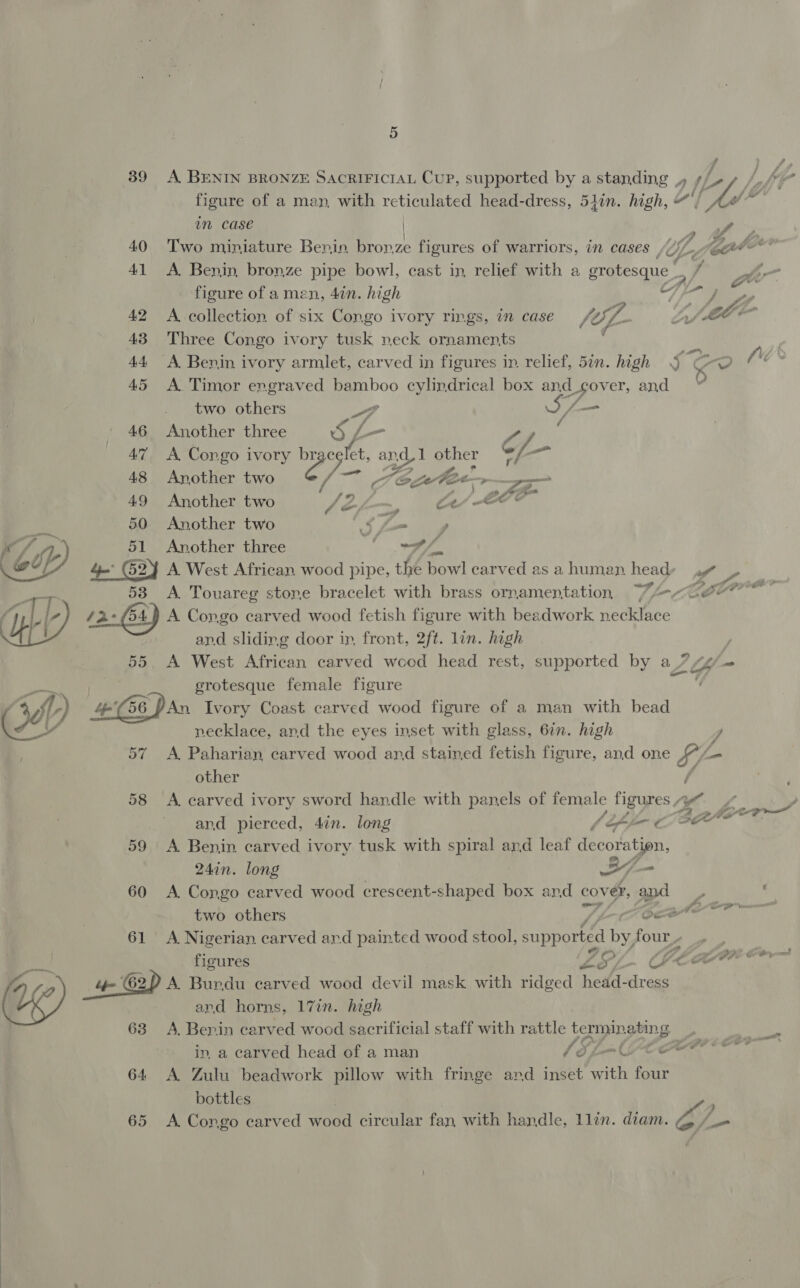 5
39 A BENIN BRONZE SACRIFICIAL CUP, supported by a standing
figure of a man with reticulated head-dress, 5½in. high,
in case
40 Two miniature Benin bronze figures of warriors, in cases
41 A Benin bronze pipe bowl, cast in relief with a grotesque
figure of a man, 4in. high
42 A collection of six Congo ivory rings, in case
43 Three Congo ivory tusk neck ornaments
44 A Benin ivory armlet, carved in figures in relief, 5in. high
45 A Timor engraved bamboo cylindrical box and cover, and
two others 5/-
46 Another three 5/-
47 A Congo ivory bracelet, and 1 other 6/-
48 Another two 6/-
49 Another two 12/-
50 Another two 5/-
51 Another three
4- 52 A West African wood pipe, the bowl carved as a human head
53 A Touareg stone bracelet with brass ornamentation 7/-
12- 54 A Congo carved wood fetish figure with beadwork necklace
and sliding door in front, 2ft. 1in. high
55 A West African carved wood head rest, supported by a
grotesque female figure
4- 56 An Ivory Coast carved wood figure of a man with bead
necklace, and the eyes inset with glass, 6in. high
57 A Paharian carved wood and stained fetish figure, and one
other
58 A carved ivory sword handle with panels of female figures
and pierced, 4in. long
59 A Benin carved ivory tusk with spiral and leaf decoration,
24in. long
60 A Congo carved wood crescent-shaped box and cover, and
two others
61 A Nigerian carved and painted wood stool, supported by four
figures
4- 62 A Bundu carved wood devil mask with ridged head-dress
and horns, 17in. high
63 A Benin carved wood sacrificial staff with rattle terminating
in a carved head of a man
64 A Zulu beadwork pillow with fringe and inset with four
bottles
65 A Congo carved wood circular fan with handle, 11in. diam. 6/-